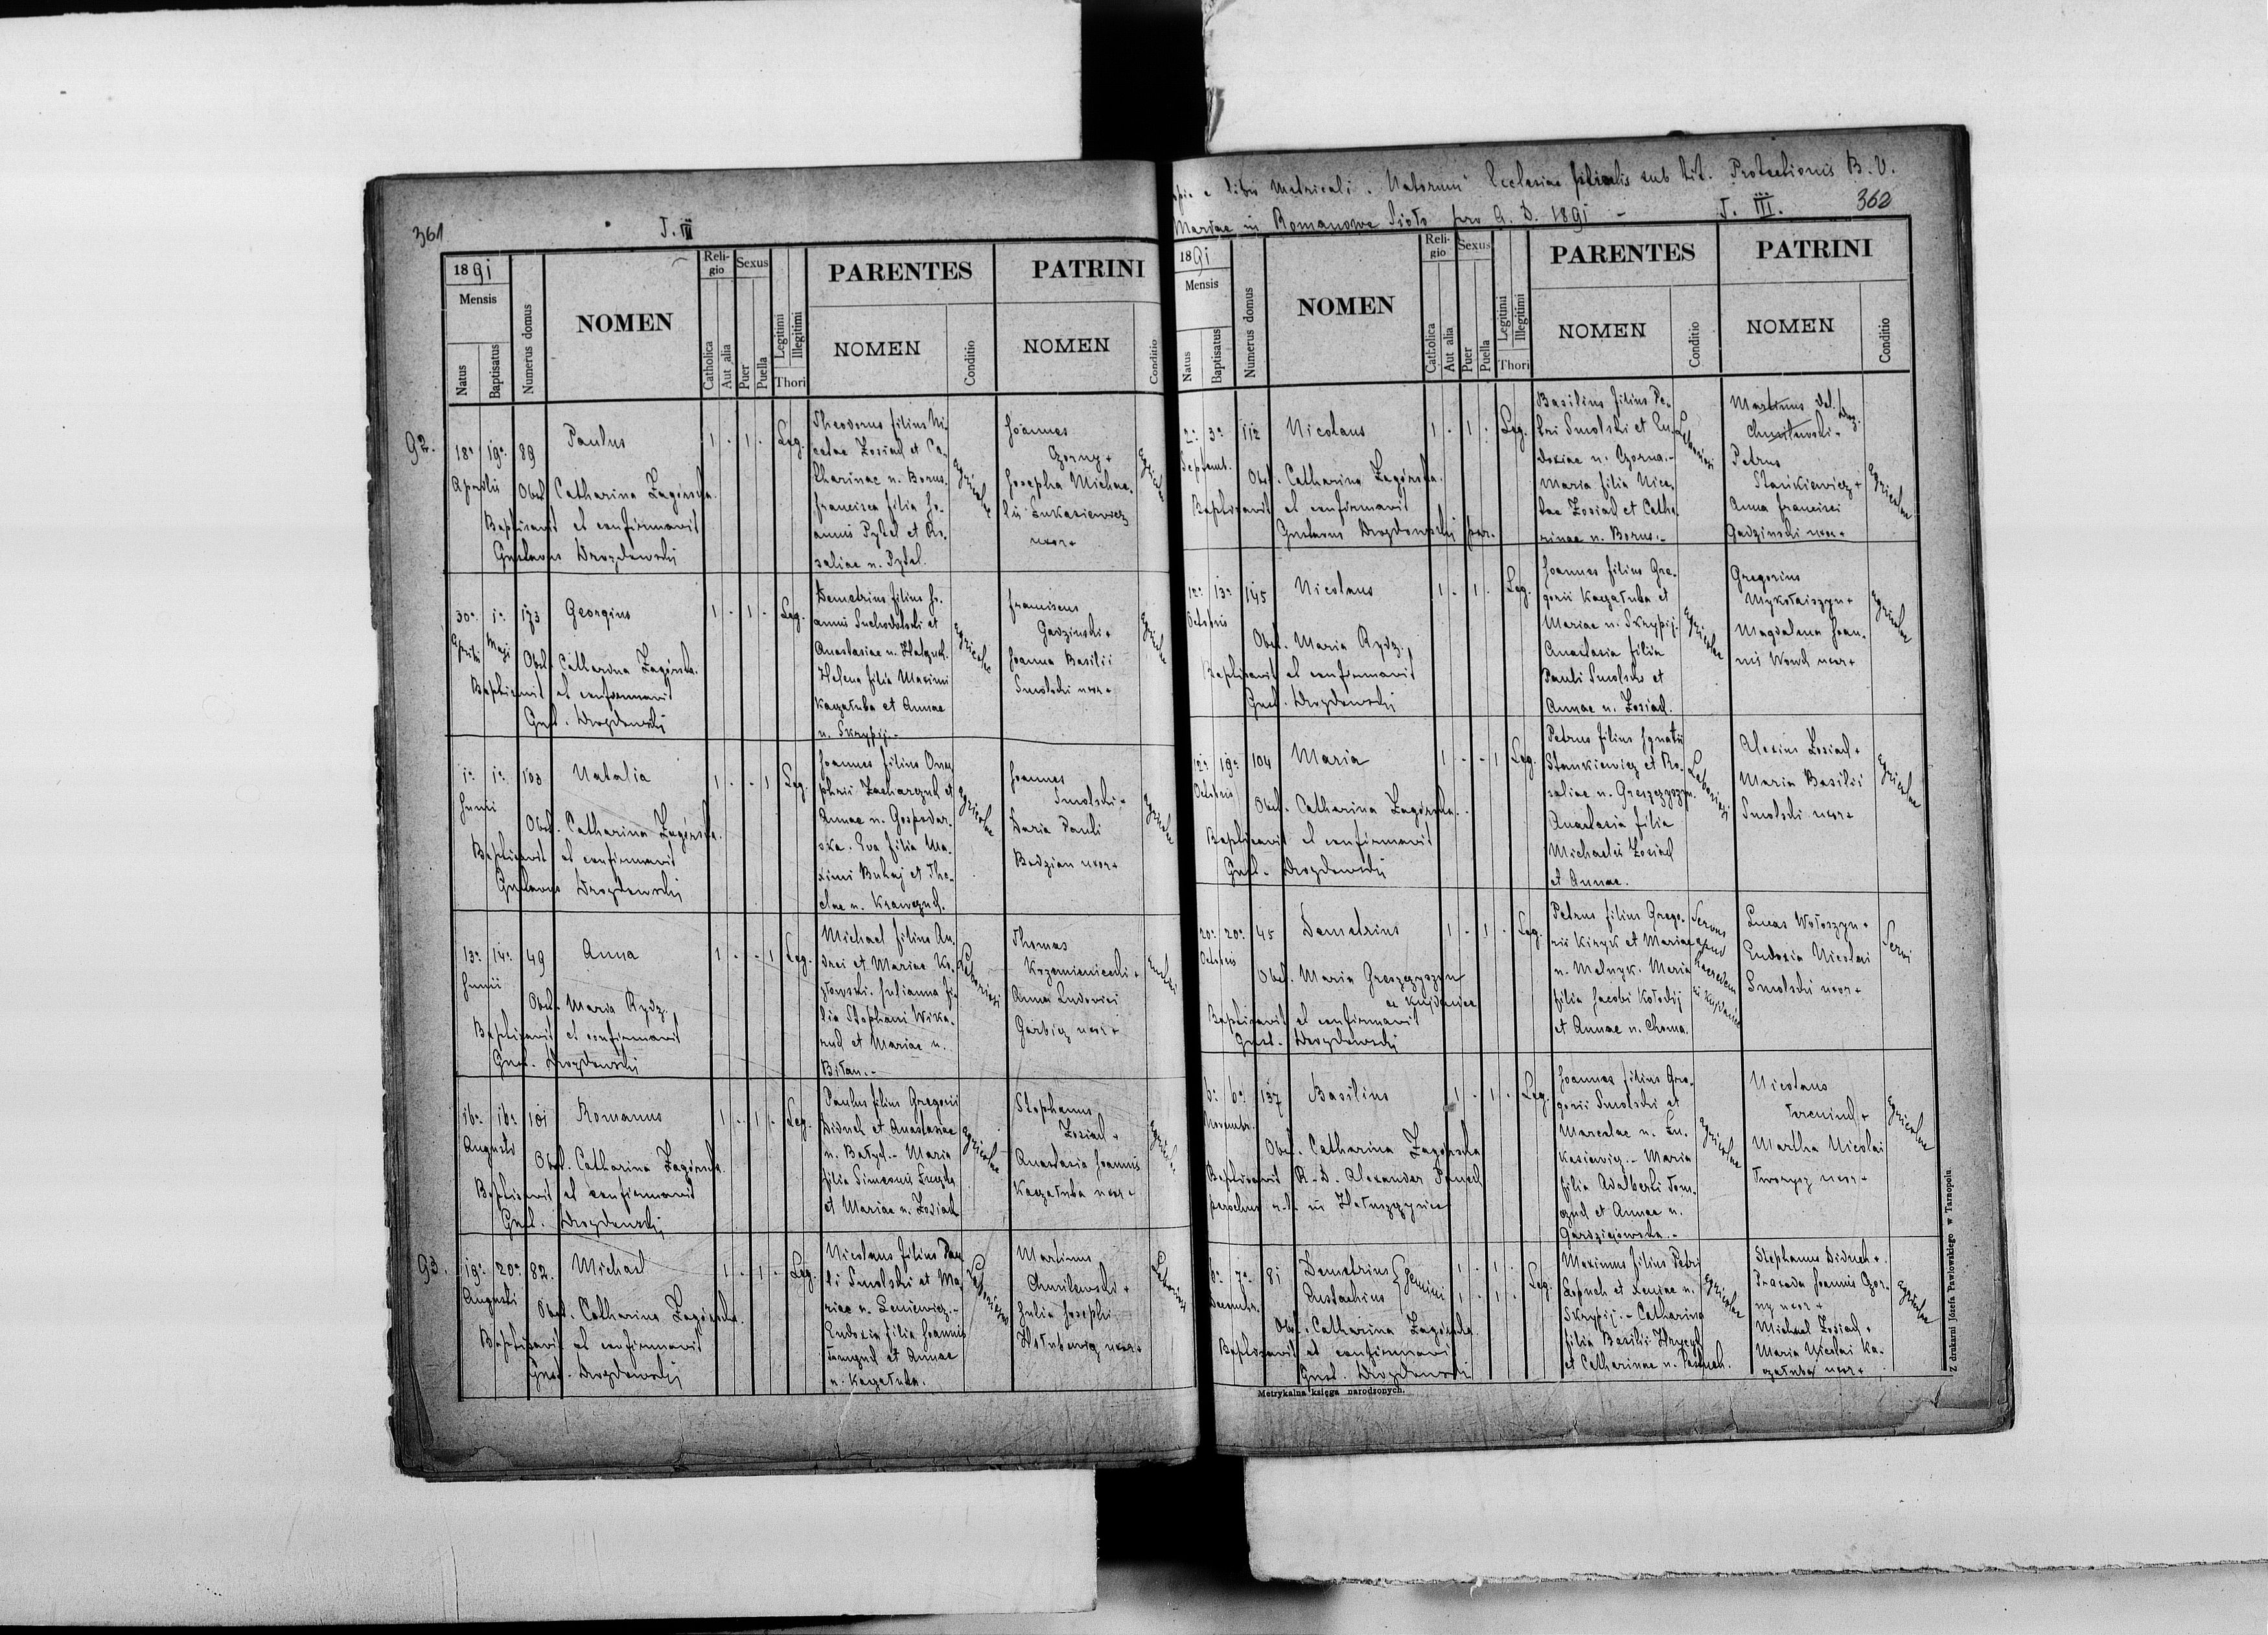 361
T. III
1891
Mensis
Natus
Baptisatus
Numerus domus
NOMEN
Reli-
gio
Catholica
Aut alia
Sexus
Puer
Puella
Legitimi
Illegitimi
Thori
PARENTES
NOMEN
Conditio
PATRINI
NOMEN
Conditio
92.
18a 19a 89 Paulus 1 . 1 . Leg.
Aprilis
Obst. Catharina Zagórska.
Baptisavit et confirmavit
Gustavus Drozdowskij
Theodorus filius Ni-
colae Zosiad et Ca-
tharinae n. Borus.
Francisca filia Jo-
annis Pytel et Ro-
saliae n. Pytel.
Agricolae
Joannes
Czorny +
Josepha Michae-
lis Łukasiewicz
uxor +
Agricolae
30a 1a 173 Georgius 1 . 1 . Leg.
Aprilis Maji
Obst. Catharina Zagórska.
Baptisavit et confirmavit
Gust. Drozdowskij
Demetrius filius Jo-
annis Suchodolski et
Anastasiae n.
Helena filia Maximi
Kaczałuba et Annae
n. Skrypij.-
Agricolae
Franciscus
Gadzinski +
Joanna Basilii
Smolski uxor +
Agricolae
1a 1a 103 Natalia 1 . . 1 Leg.
Junii
Obst. Catharina Zagórska.
Baptisavit et confirmavit
Gustavus Drozdowskij
Joannes filius Onu-
phrii Zacharczuk et
Annae n. Gospodar-
ska. Eva filia Ma-
ximi Buhaj et The-
clae n. Krawczuk.
Agricolae
Joannes
Smolski +
Daria Pauli
Bedzian uxor +
Agricolae
13a 14a 49 Anna 1 . . 1 Leg.
Junii
Obst. Maria Rydz.
Baptisavit et confirmavit
Gust. Drozdowskij
Michael filius An-
drei et Mariae Ko-
złowski. Julianna fi-
lia Stephani Wika-
ruk et Mariae n.
Biłan.-
Laboriosi
Thomas
Krzemieniecki +
Anna Ludovici
Garbicz uxor +
16a 16a 101 Romanus 1 . 1 . Leg.
Augusti
Obst. Catharina Zagórska.
Baptisavit et confirmavit
Gust. Drozdowskij
Paulus filius Gregorii
Diduch et Anastasiae
n. Bałych.- Maria
filia Simeonis
et Mariae n. Zosiad
Agricolae
Stephanus
Zosiad +
Anastasia Joannis
Kaczałuba uxor +
Agricolae
93.
19a 20a 82. Michael 1 . 1 . Leg.
Augusti
Obst. Catharina Zagórska.
Baptisavit et confirmavit
Gust. Drozdowskij
Nicolaus filius Pau-
li Smolski et Ma-
riae n. Seniewicz.-
Eudoxia filia Joannis
Tomczuk et Annae
n. Kaczałuba.
Laboriosi
Martinus
Chmilewski +
Julia Josephi
Hołubowicz uxor +
Laboriosi
Copia e libri Metricali Natorum Ecclesiae filialis sub tit. Protectionis B. V.
Mariae in Romanowe Sioło pro A. D. 1891 - T. III.
362
1891
Mensis
Natus
Baptisatus
Numerus domus
NOMEN
Reli-
gio
Catholica
Aut alia
Sexus
Puer
Puella
Legitimi
Illegitimi
Thori
PARENTES
NOMEN
Conditio
PATRINI
NOMEN
Conditio
2a 3a 112 Nicolaus 1 . 1 . Leg.
Septemb.
Obst. Catharina Zagórska.
Baptisavit et confirmavit
Gustavus Drozdowskij par.
Basilius filius Pe-
tri Smolski et Eu-
doxiae n. Czorna.-
Maria filia Nico-
lae Zosiad et Catha-
rinae n. Borus.-
Laboriosi
Martinus
Chmilewski.
Petrus
Stankiewicz +
Anna Francisci
Gadzinski uxor +
Agricolae
12a 13a 145 Nicolaus 1 . 1 . Leg.
Octobris
Obst. Maria Rydz.
Baptisavit et confirmavit
Gust. Drozdowskij
Joannes filius Gre-
gorii Kaczałuba et
Mariae n. Skrypij.
Anastasia filia
Pauli Smolski et
Annae n. Zosiad.
Agricolae
Gregorius
Mykołaiszyn +
Magdalena Joan-
nis uxor +
Agricolae
12a 19a 104 Maria 1 . . 1 Leg.
Octobris
Obst. Catharina Zagórska.
Baptisavit et confirmavit
Gust. Drozdowskij
Petrus filius Ignatii
Stankiewicz et Ro-
saliae n. Greszczyszyn.
Anastasia filia
Michaelis Zosiad
et Annae.
Laboriosi
Alexius Zosiad +
Maria Basilii
Smolski uxor +
Agricolae
20a 20a 45 Demetrius 1 . 1 . Leg.
Octobris
Obst. Maria Greszczyszyn
ex Kujdaniec
Baptisavit et confirmavit
Gust. Drozdowskij
Petrus filius Grego-
rii Kiryk et Mariae
n. Melnyk. Maria
filia Jacobi Kołodij
et Annae n. Choma.
Servus
apud
in Kujdaniec
Lucas Wołoszyn +
Eudoxia Nicolai
Smolski uxor +
Servi
6a 6a 137 Basilius 1 . 1 . Leg.
Novembr.
Obst. Catharina Zagórska
Baptisavit R. D. Alexander
parochus in Hałuszczyńce
Joannes filius Gre-
gorii Smolski et
Marcelae n. Łu-
kasiewicz.- Maria
filia Adalberti Tom-
czuk et Annae n.
Gardziejowska.-
Agricolae
Nicolaus
+
Martha Nicolai
uxor +
Agricolae
6a 7a 81 Demetrius
Eustachius
Gemini
1 . 1 .
1 . 1 .
Leg.
Decembr.
Obst. Catharina Zagórska
Baptisavit et confirmavi
Gust. Drozdowski
Maximus filius Petri
et Xeniae n.
Skrypij.- Catharina
filia Basilii
et Catharinae n.
Agricolae
Stephanus Diduch +
Joannis Czor-
ny uxor +
Michael Zosiad +
Maria Nicolai Ka-
czałuba uxor +
Agricolae
Metrykalna księga narodzonych.
Z drukarni Józefa Pawłowskiego w Tarnopolu